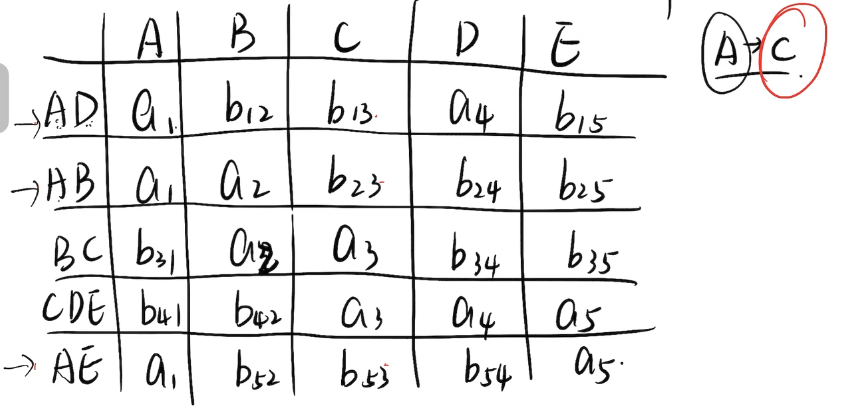 A B C D E
A → C
→ AD a₁ b₁₂ b₁₃ a₄ b₁₅
→ AB a₁ a₂ b₂₃ b₂₄ b₂₅
BC b₃₁ a₂ a₃ b₃₄ b₃₅
CDE b₄₁ b₄₂ a₃ a₄ a₅
→ AE a₁ b₅₂ b₅₃ b₅₄ a₅